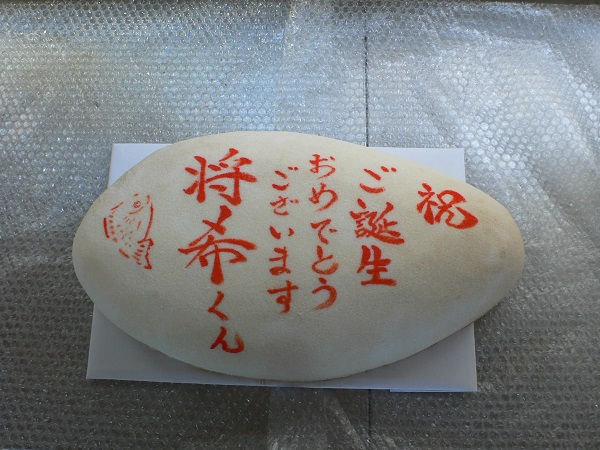 祝
ご誕生
おめでとう
ございます
将希くん